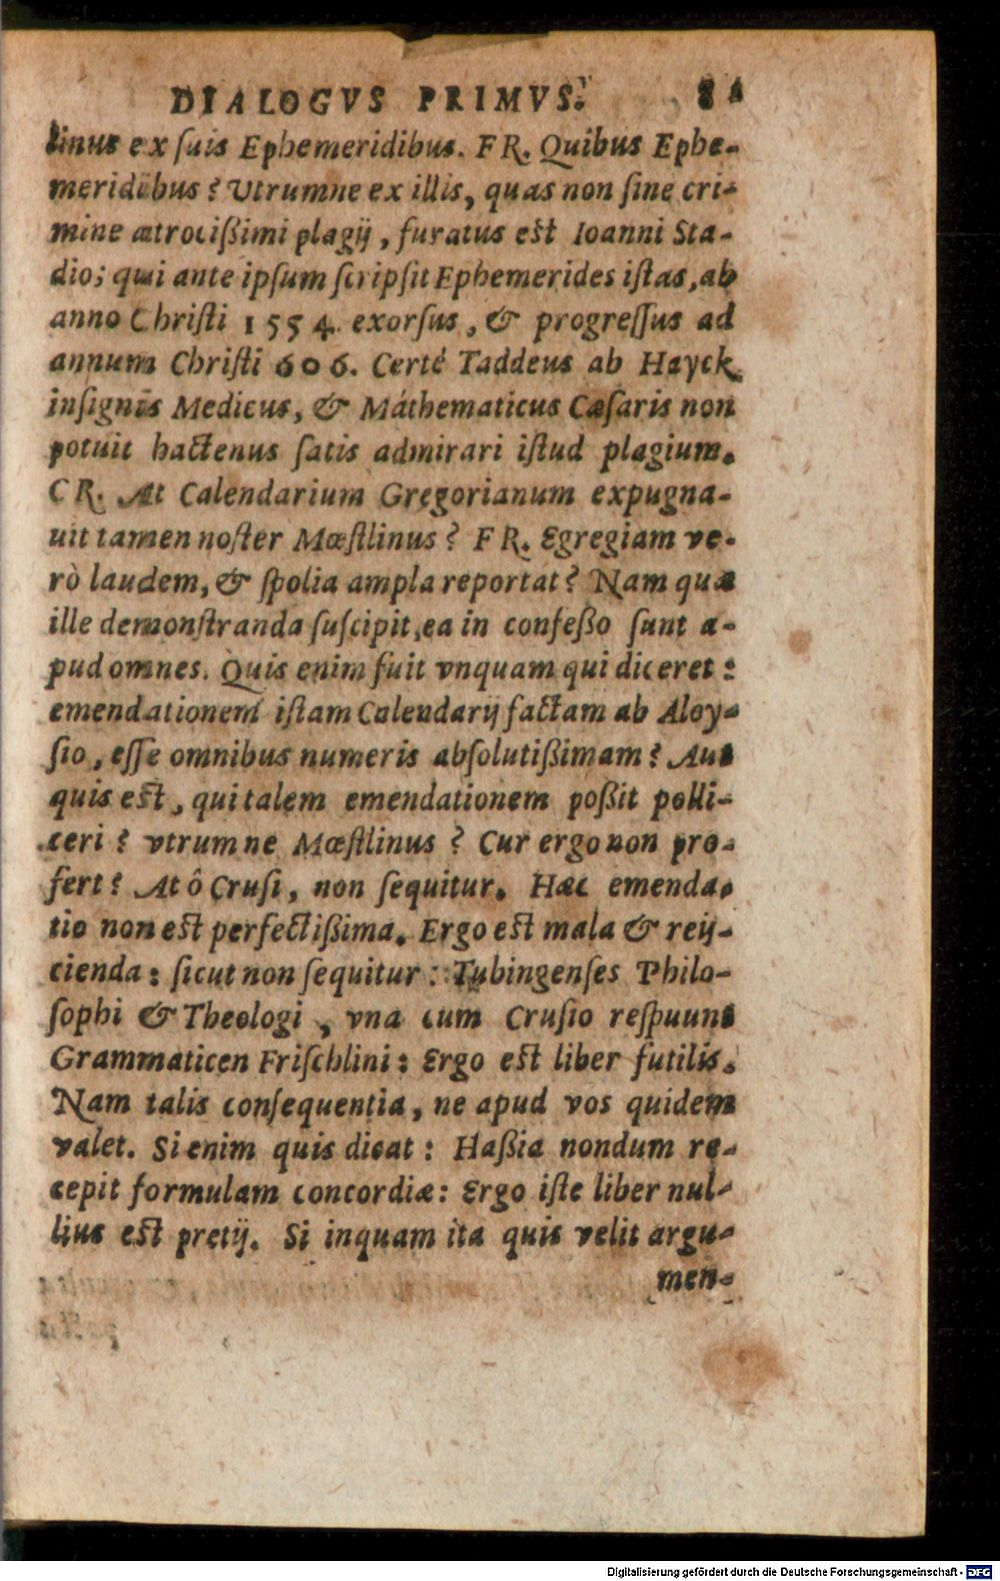 DIALOGVS PRIMVS. 81
linus ex suis Ephemeridibus. FR. Quibus Ephe-
meridibus? Vtrumne ex illis, quas non sine cri-
mine atrocißimi plagij, furatus est Ioanni Sta-
dio; qui ante ipsum scripsit Ephemerides istas, ab
anno Christi 1554. exorsus, & progressus ad
annum Christi 606. Certé Taddeus ab Hayck
insignis Medicus, & Máthematicus Cæsaris non
potuit hactenus satis admirari istud plagium.
CR. At Calendarium Gregorianum expugna-
uit tamen noster Mœstlinus? FR. Egregiam ve-
rò laudem, & spolia ampla reportat? Nam quæ
ille demonstranda suscipit, ea in confeßo sunt a-
pud omnes. Quis enim fuit vnquam qui diceret:
emendationem istam Calendarij factam ab Aloy-
sio, esse omnibus numeris absolutißimam? Aut
quis est, qui talem emendationem poßit polli-
ceri? vtrumne Mœstlinus? Cur ergo non pro-
fert? At ô Crusi, non sequitur. Hæc emenda-
tio non est perfectißima. Ergo est mala & reij-
cienda: sicut non sequitur: Tubingenses Philo-
sophi & Theologi, vna cum Crusio respuunt
Grammaticen Frischlini: Ergo est liber futilis.
Nam talis consequentia, ne apud vos quidem
valet. Si enim quis dicat: Haßia nondum re-
cepit formulam concordiæ: Ergo iste liber nul-
lius est pretij. Si inquam ita quis velit argu-
men-
Digitalisierung gefördert durch die Deutsche Forschungsgemeinschaft - DFG